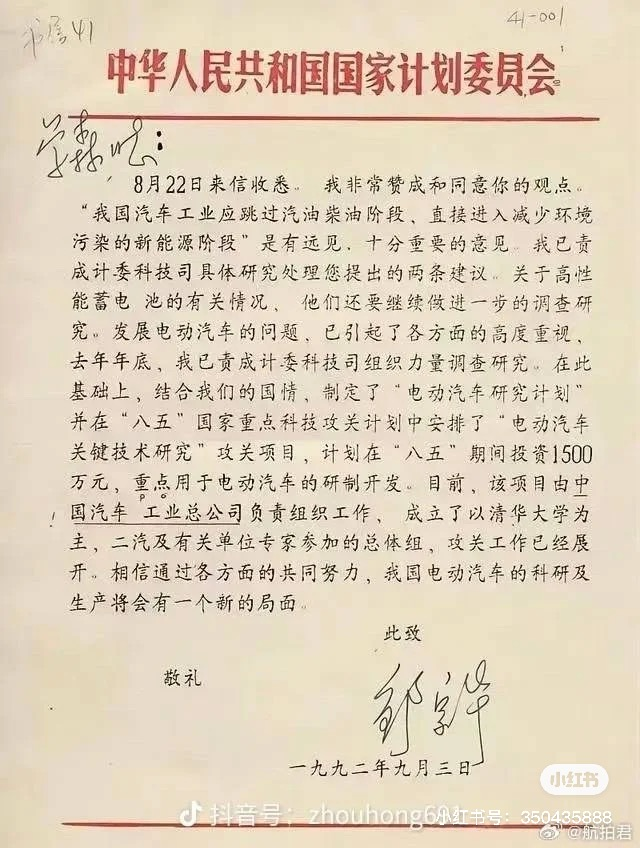 书信41
41-001
中华人民共和国国家计划委员会
学森同志：
8月22日来信收悉。 我非常赞成和同意你的观点。
“我国汽车工业应跳过汽油柴油阶段、直接进入减少环境
污染的新能源阶段”是有远见、十分重要的意见。我已责
成计委科技司具体研究处理您提出的两条建议。关于高性
能蓄电 池的有关情况， 他们还要继续做进一步的调查研
究。发展电动汽车的问题，已引起了各方面的高度重视，
去年年底，我已责成计委科技司组织力量调查研究。在此
基础上，结合我们的国情，制定了“电动汽车研究计划”
并在“八五”国家重点科技攻关计划中安排了“电动汽车
关键技术研究”攻关项目，计划在“八五”期间投资1500
万元，重点用于电动汽车的研制开发。目前，该项目由中
国汽车 工业总公司负责组织工作， 成立了以清华大学为
主，二汽及有关单位专家参加的总体组，攻关工作已经展
开。相信通过各方面的共同努力，我国电动汽车的科研及
生产将会有一个新的局面。
此致
敬礼
邹家华
一九九二年九月三日
小红书
抖音号：zhouhong691
小红书号：350435888
@航拍君